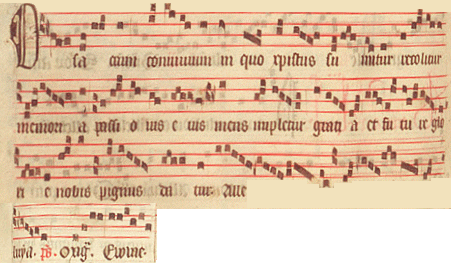 O sa crum conuiuium in quo xpistus su mitur recolitur
memori a passi o nis e ius mens impletur grati a et fu tu re glo
ri e nobis pignus da tur. Alle
luya. ps.